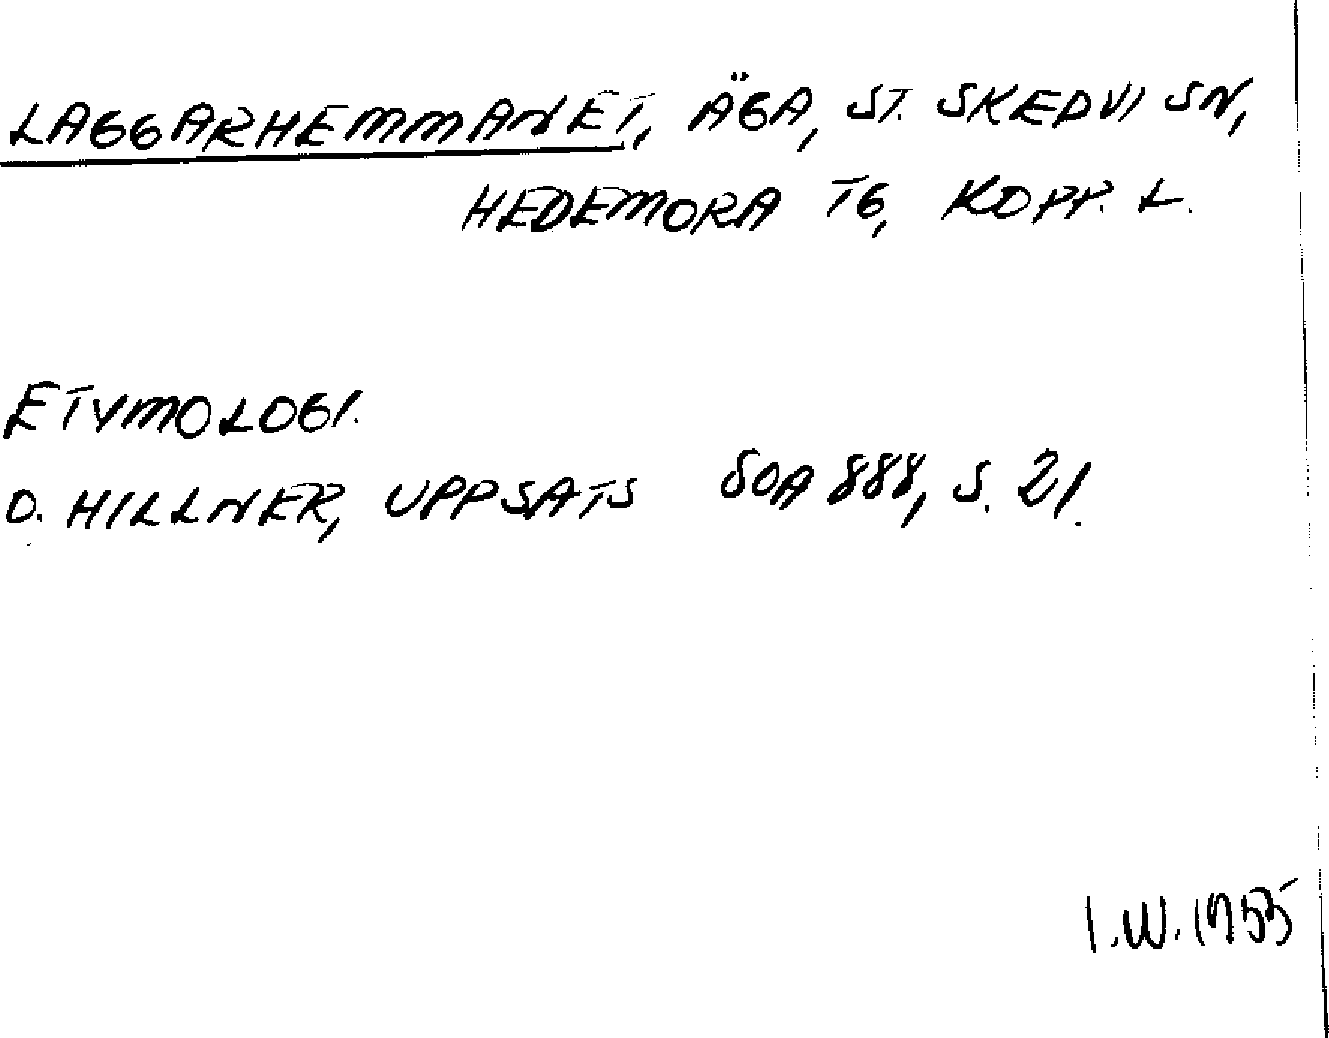 LAGGARHEMMANET, ÄGA, ST. SKEDVI SN,
HEDEMORA TG, KOPP. L.
ETYMOLOGI.
O. HILLNER, UPPSATS SOA 888, S. 21.
I.W. 1955